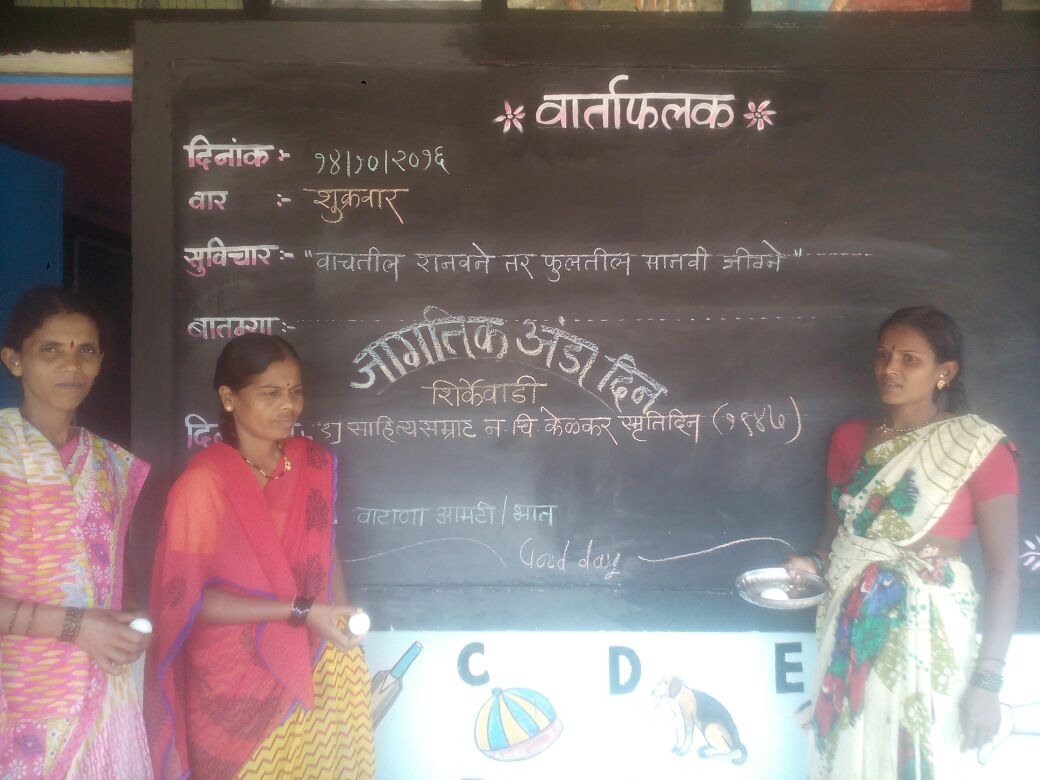 वार्ताफलक
दिनांक :- १४/१०/२०१६
वार :- शुक्रवार
सुविचार :- "वाचतील रानवने तर फुलतील मानवी जीवने"
बातम्या :-
जागतिक अंडा दिन
शिर्केवाडी
साहित्यसम्राट न चि केळकर स्मृतिदिन (१९४७)
वाटाणा आमटी / भात
Good day
C D E